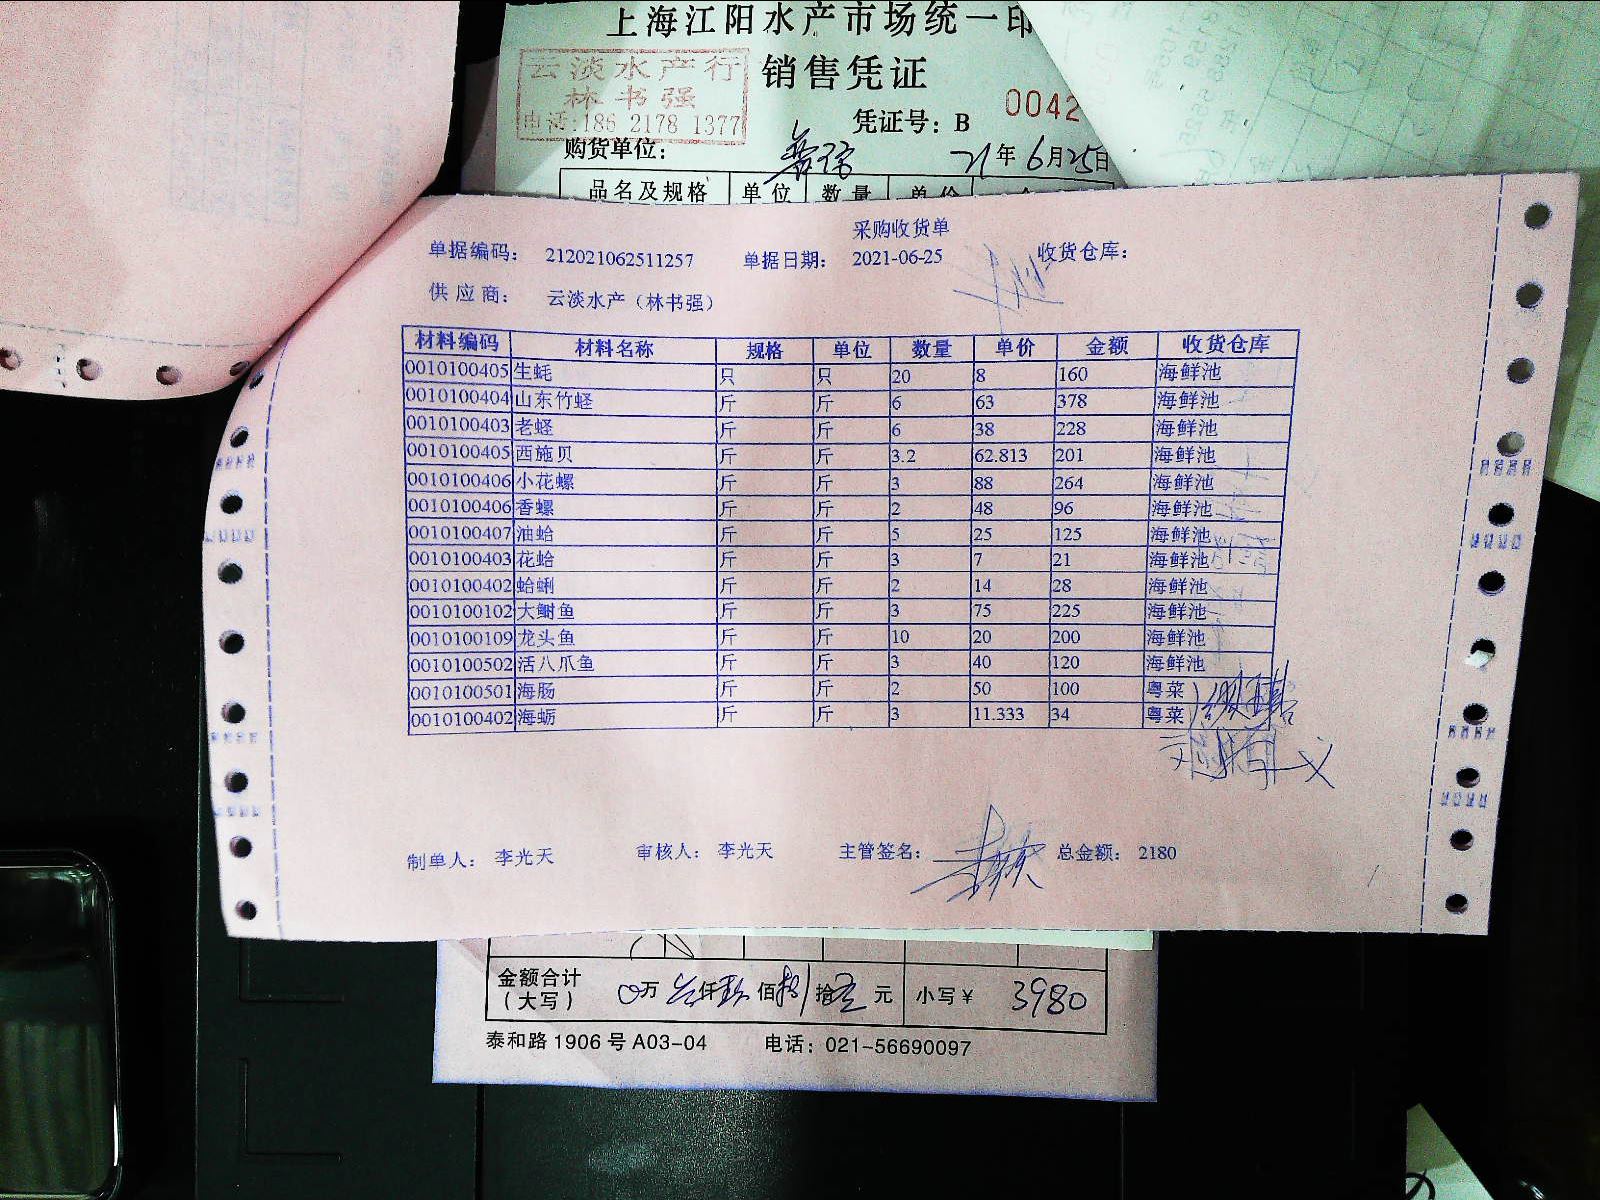 上海江阳水产市场统一印
云淡水产行
林书强
电话:186 2178 1377
销售凭证
凭证号：B 0042
购货单位：
21年6月25日
品名及规格 单位 数量 单价
采购收货单
单据编码： 212021062511257 单据日期： 2021-06-25 收货仓库：
供应商： 云淡水产（林书强）
材料编码 材料名称 规格 单位 数量 单价 金额 收货仓库
0010100405 生蚝 只 只 20 8 160 海鲜池
0010100404 山东竹蛏 斤 斤 6 63 378 海鲜池
0010100403 老蛏 斤 斤 6 38 228 海鲜池
0010100405 西施贝 斤 斤 3.2 62.813 201 海鲜池
0010100406 小花螺 斤 斤 3 88 264 海鲜池
0010100406 香螺 斤 斤 2 48 96 海鲜池
0010100407 油蛤 斤 斤 5 25 125 海鲜池
0010100403 花蛤 斤 斤 3 7 21 海鲜池
0010100402 蛤蜊 斤 斤 2 14 28 海鲜池
0010100102 大鲥鱼 斤 斤 3 75 225 海鲜池
0010100109 龙头鱼 斤 斤 10 20 200 海鲜池
0010100502 活八爪鱼 斤 斤 3 40 120 海鲜池
0010100501 海肠 斤 斤 2 50 100 粤菜
0010100402 海蛎 斤 斤 3 11.333 34 粤菜
制单人： 李光天 审核人： 李光天 主管签名： 总金额： 2180
金额合计
（大写） 万 仟 佰 拾 元 小写￥ 3980
泰和路1906号A03-04 电话：021-56690097